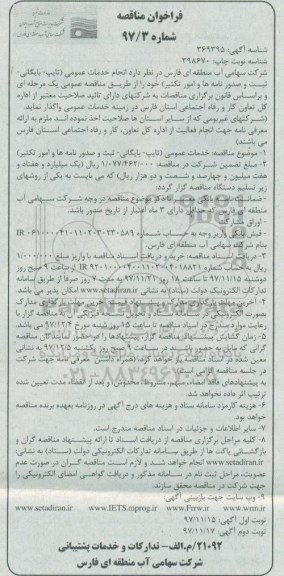 فراخوان مناقصه
شماره ۹۷/۳
شناسه آگهی: ۳۶۹۳۹۵
شناسه نوبت چاپ: ۳۹۸۶۷۰
شرکت سهامی آب منطقه ای فارس در نظر دارد انجام خدمات عمومی (تایپ- بایگانی-
ثبت و صدور نامه ها و امور تکثیر) خود را از طریق مناقصه عمومی یک مرحله ای
و براساس قانون برگزاری مناقصات، به شرکتهای دارای تائید صلاحیت معتبر از اداره
کل تعاون کار و رفاه اجتماعی استان فارس در زمینه خدمات عمومی واگذار نماید.
(شرکتهای غیربومی که از سایر استان ها صلاحیت اخذ نموده اند ملزم به ارائه
معرفی نامه جهت انجام فعالیت از اداره کل تعاون، کار و رفاه اجتماعی استان فارس
می باشند)
۱- موضوع مناقصه: خدمات عمومی (تایپ- بایگانی- ثبت و صدور نامه ها و امور تکثیر)
۲- مبلغ تضمین شرکت در مناقصه: ۱/۰۷۷/۴۶۲/۰۰۰ ریال (یک میلیارد و هفتاد و
هفت میلیون و چهارصد و شصت و دو هزار ریال) که می بایست به یکی از روشهای
زیر تسلیم دستگاه مناقصه گزار گردد:
- ضمانت نامه بانکی با ذکر موضوع مناقصه در وجه شرکت سهامی آب
منطقه ای فارس که حداقل دارای ۳ ماه اعتبار از تاریخ صدور باشد.
- اوراق
- فیش بانکی واریز وجه به حساب شماره
بنام شرکت سهامی آب منطقه ای فارس.
۳- دریافت اسناد مناقصه: خرید و دریافت اسناد مناقصه با واریز مبلغ ۱/۰۰۰/۰۰۰
ریال به حساب شماره از ساعت ۹ صبح روز
دوشنبه ۹۷/۱۱/۱۵ تا ساعت روز ۹۷/۱۱/۲۲ به مدت ۷ روز صرفا از طریق سامانه
تدارکات الکترونیکی دولت (ستاد) به نشانی www.setadiran.ir امکان پذیر می باشد.
۴- آخرین مهلت بارگذاری مدارک و پیشنهاد قیمت: آخرین مهلت بارگذاری مدارک
بصورت الکترونیکی در سامانه
رعایت موارد مندرج در اسناد مناقصه تا ساعت ۱۵ روز شنبه مورخ ۹۷/۱۲/۴ می باشد.
۵- زمان گشایش پیشنهادات مناقصه گران: پیشنهادها را در حضور نمایندگان مناقصه
گرانی که مایل به حضور باشند در ساعت ۹ صبح روز یکشنبه ۹۷/۱۲/۵ به نشانی
معین شده در اسناد مناقصه باز خواهد کرد. (همراه داشتن معرفی نامه جهت شرکت
در جلسه مناقصه الزامی است)
به پیشنهادهای فاقد امضاء، مبهم، مشروط، مخدوش و بعد از انقضاء مدت تعیین شده
ترتیب اثر داده نخواهد شد.
۶- هزینه کارمزد سامانه ستاد و هزینه های درج آگهی در روزنامه بعهده برنده مناقصه
خواهد بود.
۷- سایر اطلاعات و جزئیات در اسناد مناقصه مندرج است.
۸- کلیه مراحل برگزاری مناقصه از دریافت اسناد تا ارائه پیشنهاد مناقصه گران و
بازگشائی پاکت ها از طریق سامانه تدارکات الکترونیکی دولت (ستاد)، به نشانی:
www.setadiran.ir انجام خواهد شد و لازم است مناقصه گران در صورت عدم
عضویت، مراحل ثبت نام در سامانه مذکور و دریافت گواهی امضای الکترونیکی را
جهت شرکت در مناقصه محقق سازند.
۹- وب سایت جهت بازبینی آگهی:
www.setadiran.ir www.IETS.mporg.ir www.Frrw.ir www.wrm.ir
نوبت اول آگهی: ۹۷/۱۱/۱۵
نوبت دوم آگهی: ۹۷/۱۱/۱۷
۲۱۰۹۲/م.الف- تدارکات و خدمات پشتیبانی
شرکت سهامی آب منطقه ای فارس